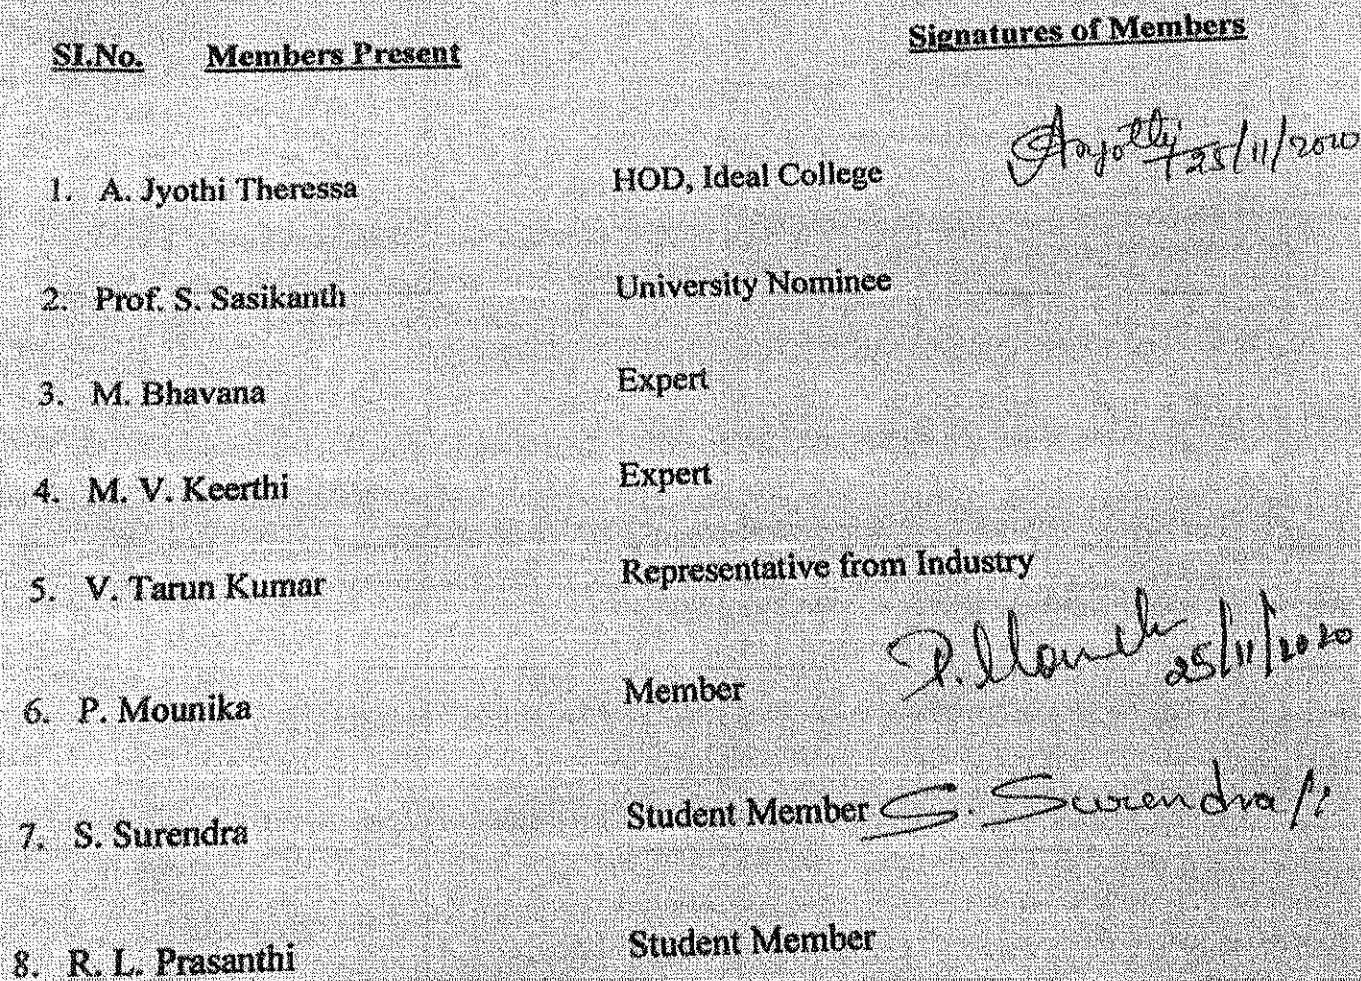 SI.No. Members Present Signatures of Members
1. A. Jyothi Theressa HOD, Ideal College 25/11/2020
2. Prof. S. Sasikanth University Nominee
3. M. Bhavana Expert
4. M. V. Keerthi Expert
5. V. Tarun Kumar Representative from Industry
6. P. Mounika Member P. 25/11/2020
7. S. Surendra Student Member S. Surendra
8. R. L. Prasanthi Student Member